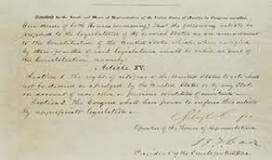 Resolved by the Senate and House of Representatives of the United States of America in Congress assembled,
two-thirds of both Houses concurring, That the following article be
proposed to the legislatures of the several States as an amendment
to the Constitution of the United States which when ratified
by three-fourths of said legislatures shall be valid as part of
the Constitution, namely:
Article XV.
Section 1. The right of citizens of the United States to vote shall
not be denied or abridged by the United States or by any State
on account of race, color, or previous condition of servitude.
Section 2. The Congress shall have power to enforce this article
by appropriate legislation.
Speaker of the House of Representatives